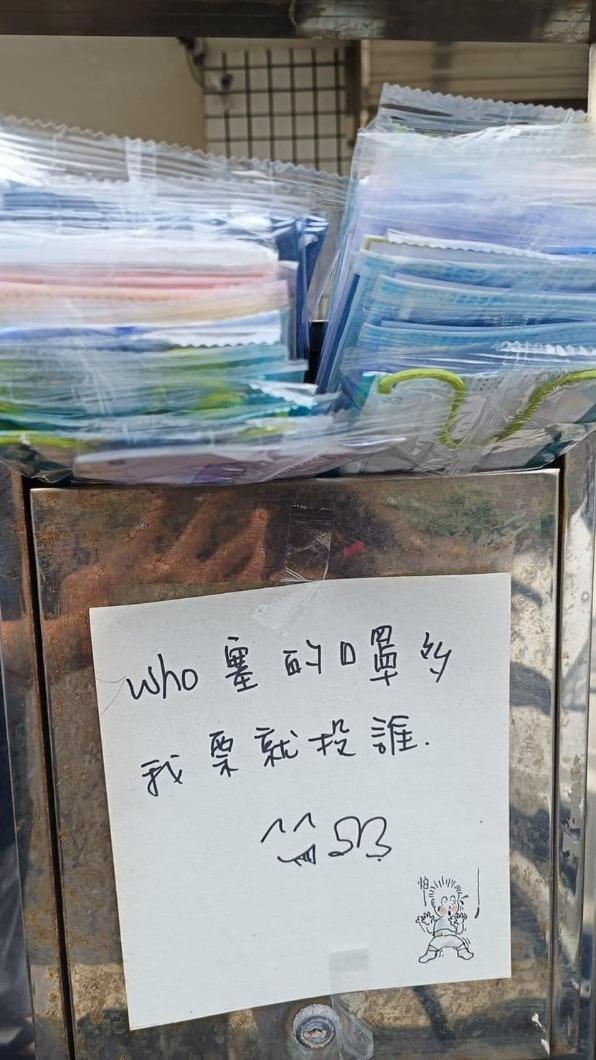 who 塞的口罩多
我票就投誰.
怕